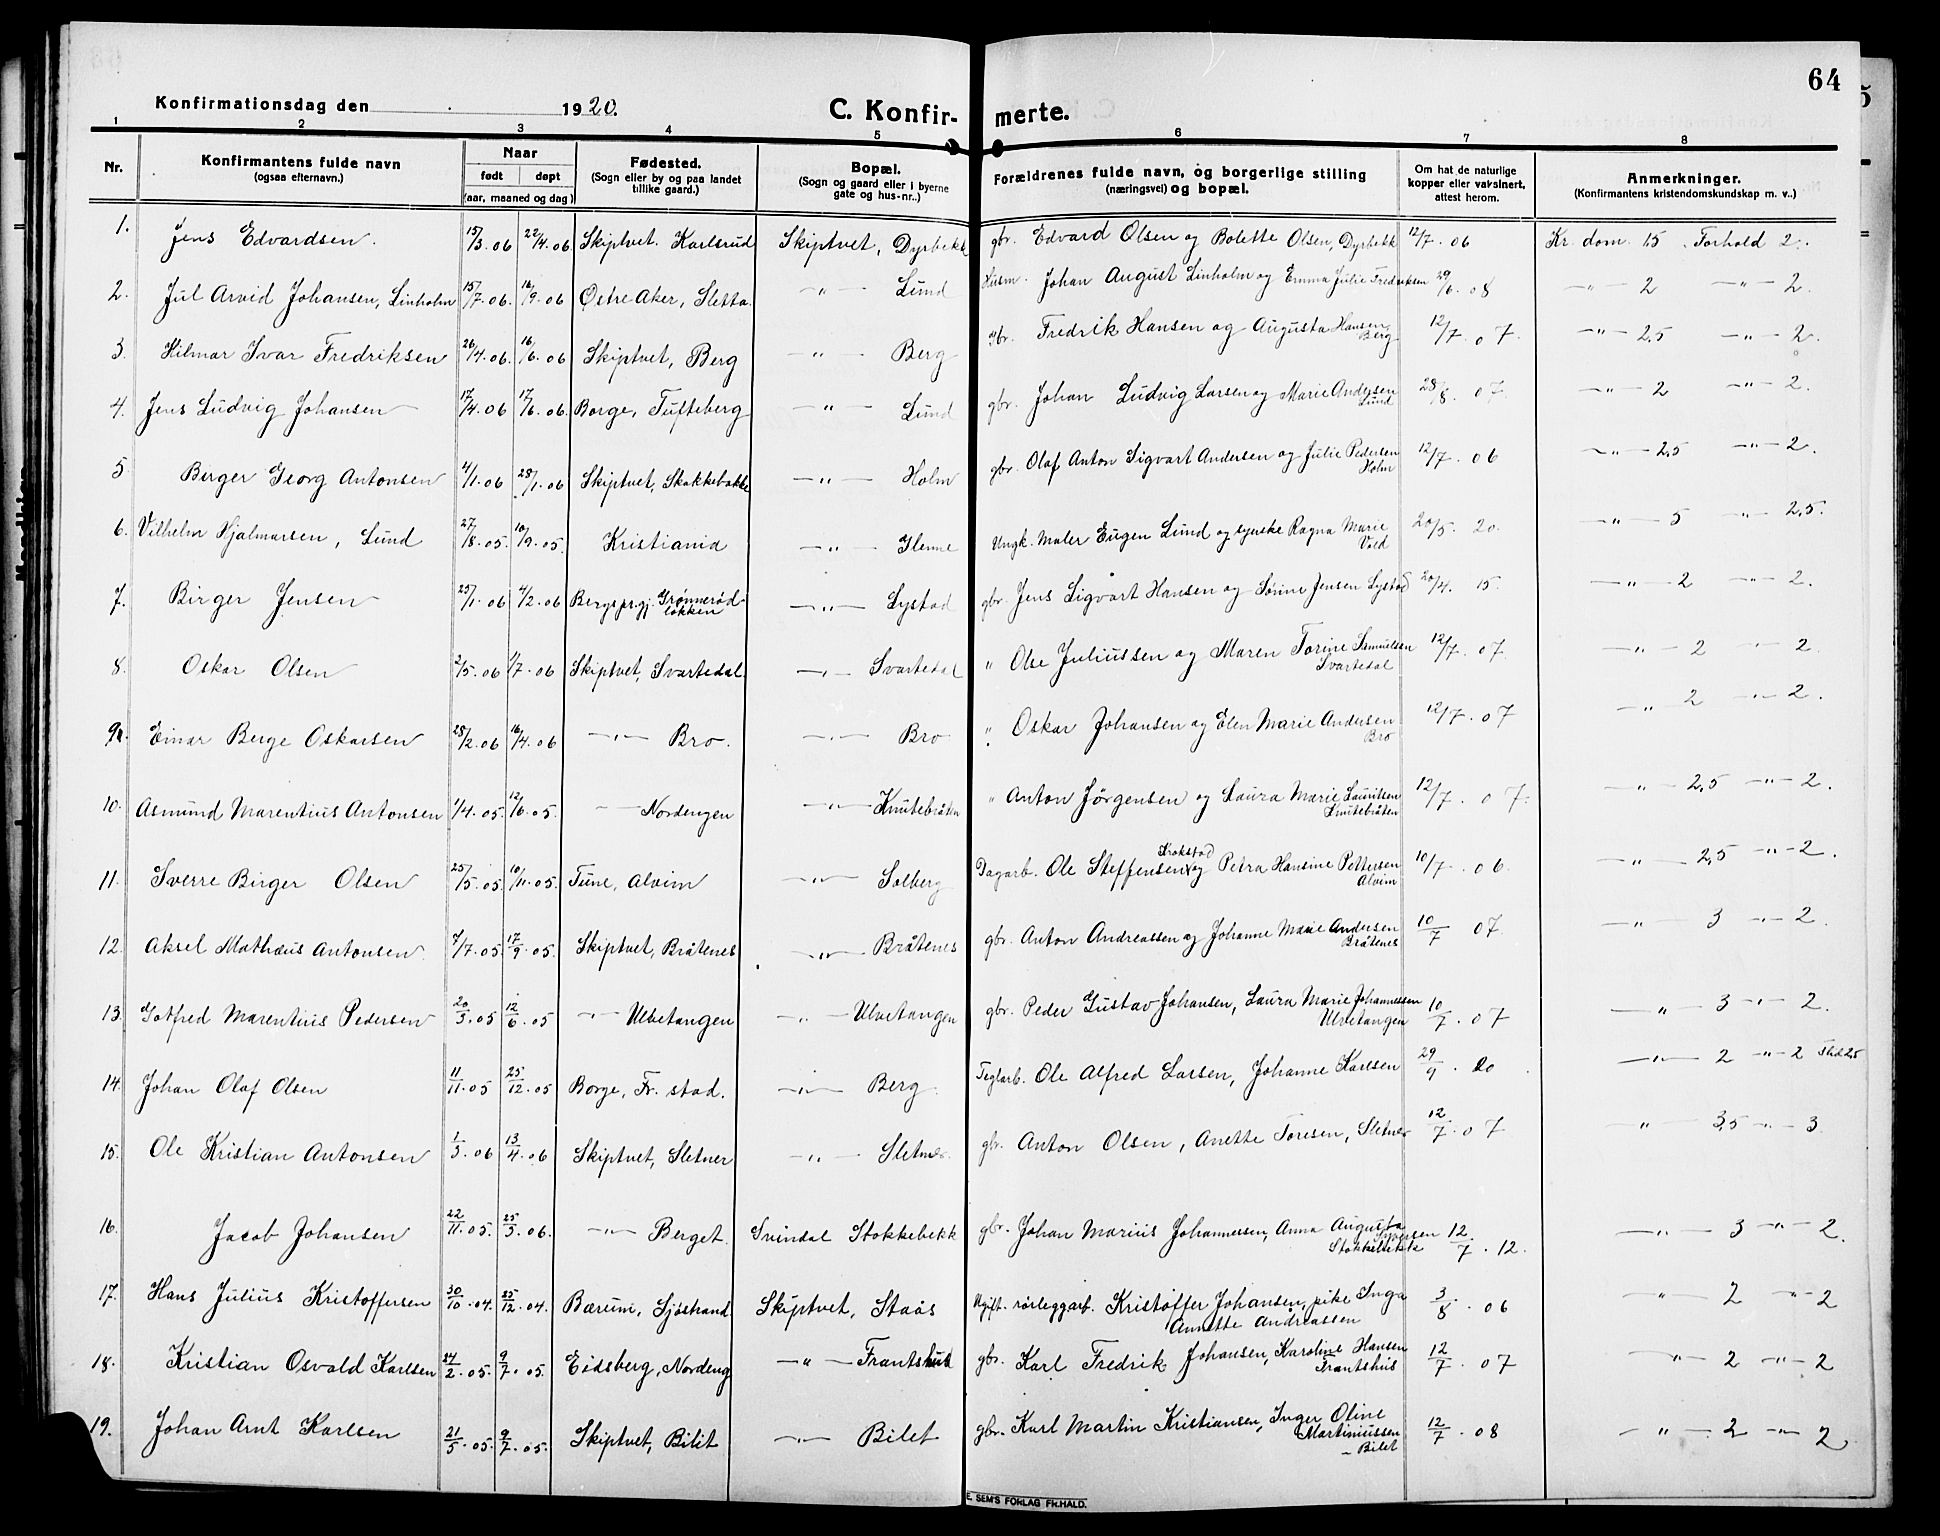 64
Konfirmationsdag den 1920. C. Konfir- merte.
1 2 3 4 5 6 7 8
Nr. Konfirmantens fulde navn (ogsaa efternavn.) Naar født døpt (aar, maaned og dag) Fødested. (Sogn eller by og paa landet tillike gaard.) Bopæl. (Sogn og gaard eller i byerne gate og hus-nr..) Forældrenes fulde navn, og borgerlige stilling (næringsvei) og bopæl. Om hat de naturlige kopper eller vaksinert, attest herom. Anmerkninger. (Konfirmantens kristendomskundskap m. v..)
1. Jens Edvardsen. 15/3.06 22/4.06 Skiptvet. Karlsrud Skiptvet, Dyrbekk gbr. Edvard Olsen og Bolette Olsen, Dyrbekk 12/7.06 Kr. dom. 1,5 Forhold 2.
2. Jul Arvid Johansen, Linholm 15/7.06. 16/9.06 Østre Aker, Sletta -"- Lund Husm. Johan August Linholm og Emma Julie Fredriksen 29/6.08 -"- 2 -"- 2.
3. Hilmar Ivar Fredriksen 26/4.06. 16/6.06 Skiptvet, Berg -"- Berg gbr. Fredrik Hansen og Augusta Hansen, Berg 12/7.07. -"- 2,5 -"- 2.
4. Jens Ludvig Johansen 17/4.06 17/6.06. Borge, Tufteberg -"- Lund gbr. Johan Ludvig Larsen og Marie Andersen Lund 28/8.07. -"- 2 -"- 2.
5 Berger Georg Antonsen 4/1.06 28/1.06 Skiptvet, Skakkebakke -"- Holm gbr. Olaf Anton Sigvart Andersen og Julie Pedersen Holm 12/7.06 -"- 2,5 -"- 2.
6. Vilhelm Hjalmarsen, Lund 27/8.05. 10/9.05. Kristiania -"- Glenne Ungk. Maler Eugen Lund og tjeneske Ragna Marie Vold 20/5.20. -"- 5 -"- 2,5.
7. Birger Jensen 25/1.06 4/2.06 Bergs pr.gj. Grønnerødløkken -"- Lystad gbr. Jens Sigvart Hansen og Sørine Jensen Lystad 20/4.15. -"- 2 -"- 2.
8. Oskar Olsen 2/5.06 1/7.06 Skiptvet, Svartedal -"- Svartedal " Olse Juliussen og Maren Torine Samuelsen Svartedal 12/7.07. -"- 2 -"- 2.
9. Einar Berge Oskarsen 28/2.06 16/4.06 -"- Bro. -"- Bro " Oskar Johansen og Elen Marie Andersen Bro 12/7.07 -"- 2 -"- 2.
10. Asmund Marentius Antonsen 1/4.05. 12/6.05. -"- Nordengen -"- Knutebråten " Anton Jørgensen og Laura Marie Lauritsen Knutebråten 12/7.07. -"- 2,5 -"- 2.
11. Sverre Birger Olsen 25/5.05. 10/11.05. Tune, Alvim -"- Solberg Dagarb. Ole Steffensen Krokstad og Petra Hansine Pettersen Alvim 10/7.06. -"- 2,5 -"- 2.
12. Aksel Mathæus Antonsen 7/7.05. 17/9.05. Skiptvet, Bråtenes -"- Bråtenes gbr. Anton Andreassen og Johanne Marie Andersen Bråtenes 10/7 07. -"- 3 -"- 2.
13. Gotfred Marentius Pedersen 20/3.05 12/6.05 -"- Ulvetangen -"- Ulvetangen gbr. Peder Gustav Johansen, Laura Marie Johannessen Ulvetangen 10/7.07 -"- 3 -"- 2.
14. Johan Olaf Olsen 11/11.05 25/12.05 Borge, Fr. stad. -"- Berg. Teglarb. Ole Alfred Larsen, Johanne Karlsen 29/9.20 -"- 2 -"- 2
15. Ole Kristian Antonsen 1/3.06 13/4.06 Skiptvet, Sletner -"- Sletner. gbr. Anton Olsen, Anette Toresen, Sletner 12/7.07 " 3,5 -"- 3
16. Jacob Johansen 22/11.05. 25/3.06. -"- Berget. Svindal Stokkebekk gbr. Johan Mariius Johannessen, Anna Augusta Iversen Stokkebekk 12/7.12. -"- 3 -"- 2.
17. Hans Julius Kristoffersen 30/10.04. 25/12.04. Bærum, Sjøstrand Skiptvet, Staås Ugift. rørleggarb. Kristoffer Johansen, pike Inga Annette Andreassen 3/8.06 -"- 2 -"- 2
18. Kristian Osvald Karlsen 24/2.05. 9/7.05. Eidsberg, Nordeng -"- Frantshus gbr. Karl Fredrik Johansen, Karoline Hansen Frantshus 12/7.07 -"- 2 -"- 2
19. Johan Arnt Karlsen 21/5.05. 9/7.05. Skiptvet, Bilet -"- Bilet gbr. Karl Martin Kristiansen, Inger Oline Martiniussen - Bilet 12/7.08 -"- 2 -"- 2
E. SEM'S FORLAG FR.HALD.